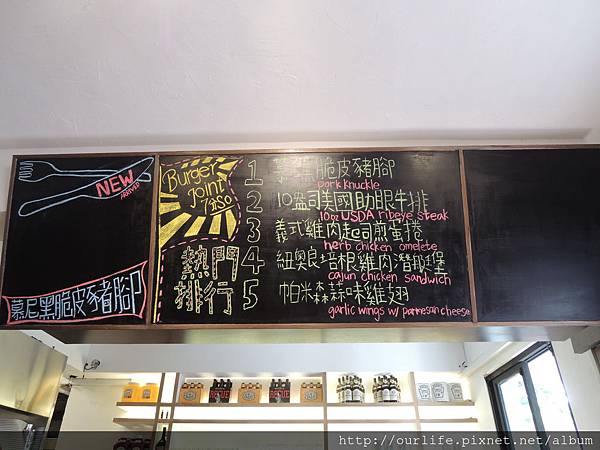 NEW
ARRIVED
慕尼黑脆皮豬腳
Burger
Joint
7aso
熱門
排行
1 慕尼黑脆皮豬腳
pork knuckle
2 10盎司美國助眼牛排
10oz USDA ribeye steak
3 義式雞肉起司煎蛋捲
herb chicken omelete
4 紐奧良培根雞肉潛艇堡
cajun chicken sandwich
5 帕米森蒜味雞翅
garlic wings w/ parmesan cheese
http://ourlife.pixnet.net/album